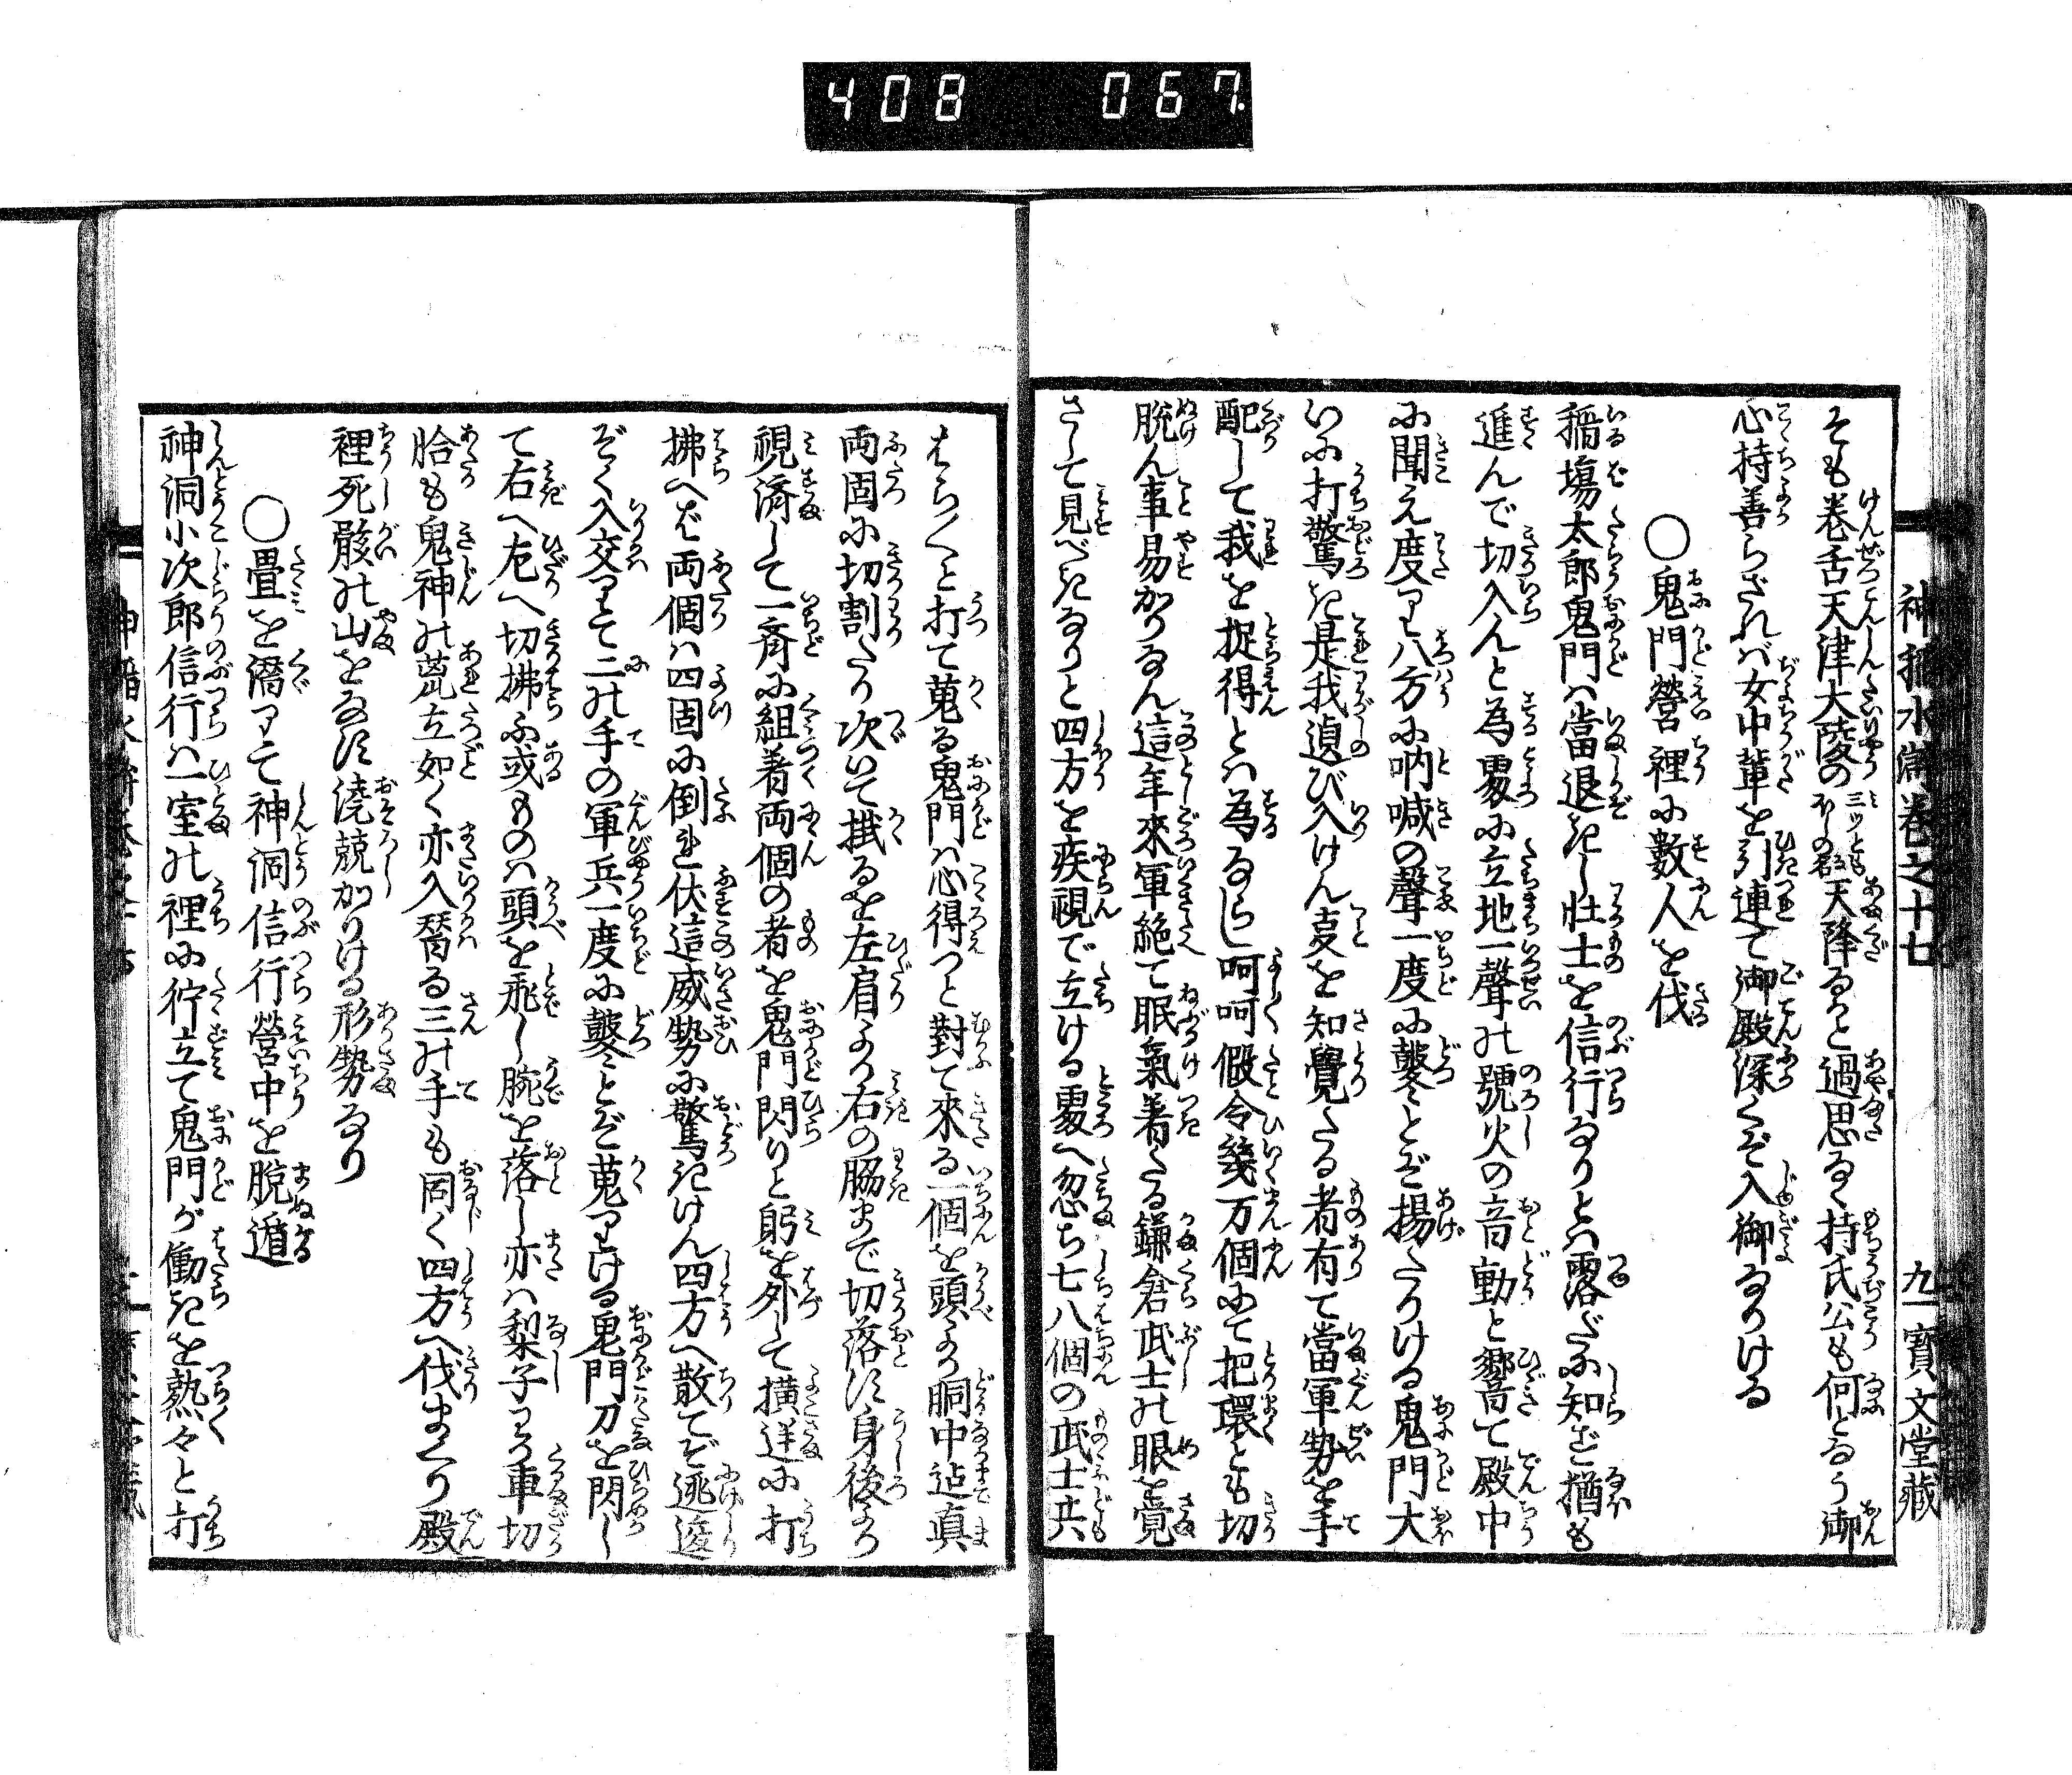 408 067
神稲水滸巻之十七 九 寶文堂藏
そも巻舌天津大陵の三ッともほしの名天降ると過思なく持氏公も何とるう御
心持善らざれバ女中軰を引連て御殿深くぞ入御なりける
○鬼門營裡に數人を伐
稲塲太郎鬼門ハ當退きし壮士を信行なりとハ露だに知ず猶も
進んで切入んと為処に立地一聲の號火の音動と響て殿中
に聞え度りハ方に吶喊の聲一度に鼕とぞ揚たりける鬼門大
いに打驚き是我偵び入けん支を知覺たる者有て當軍勢を手
配して我を捉得とハ為るらし呵呵假令幾万個にて把環とも切
脱ん事易かりなん這年來軍絶て眠氣着たる鎌倉武士の眼を覺
さして見べきなりと四方を疾視で立ける処へ忽ち七八個の武士共
はら〳〵と打て蒐る鬼門ハ心得つと對て來る一個を頭より胴中迠真
両固に切割たり次いで撠るを左肩より右の脇まで切落に身後より
視済して一斉に組着両個の者を鬼門閃りと躬を外して横逆に打
拂へば両個ハ四固に倒れ伏這威勢に驚きけん四方へ散てぞ逃迯
ぞく入交りて二の手の軍兵一度に鼕とぞ蒐りける鬼門刀を閃し
て右へ左へ切拂ふ或ものハ頭を飛し腕を落し亦ハ梨子わり車切
恰も鬼神の荒立如く亦入替る三の手も同く四方へ伐まくり殿
裡死骸の山をなに兢競かりける形勢なり
○畳を潛りて神洞信行營中を脱遁
神洞小次郎信行ハ一室の裡に佇立て鬼門が働きを熟々と打